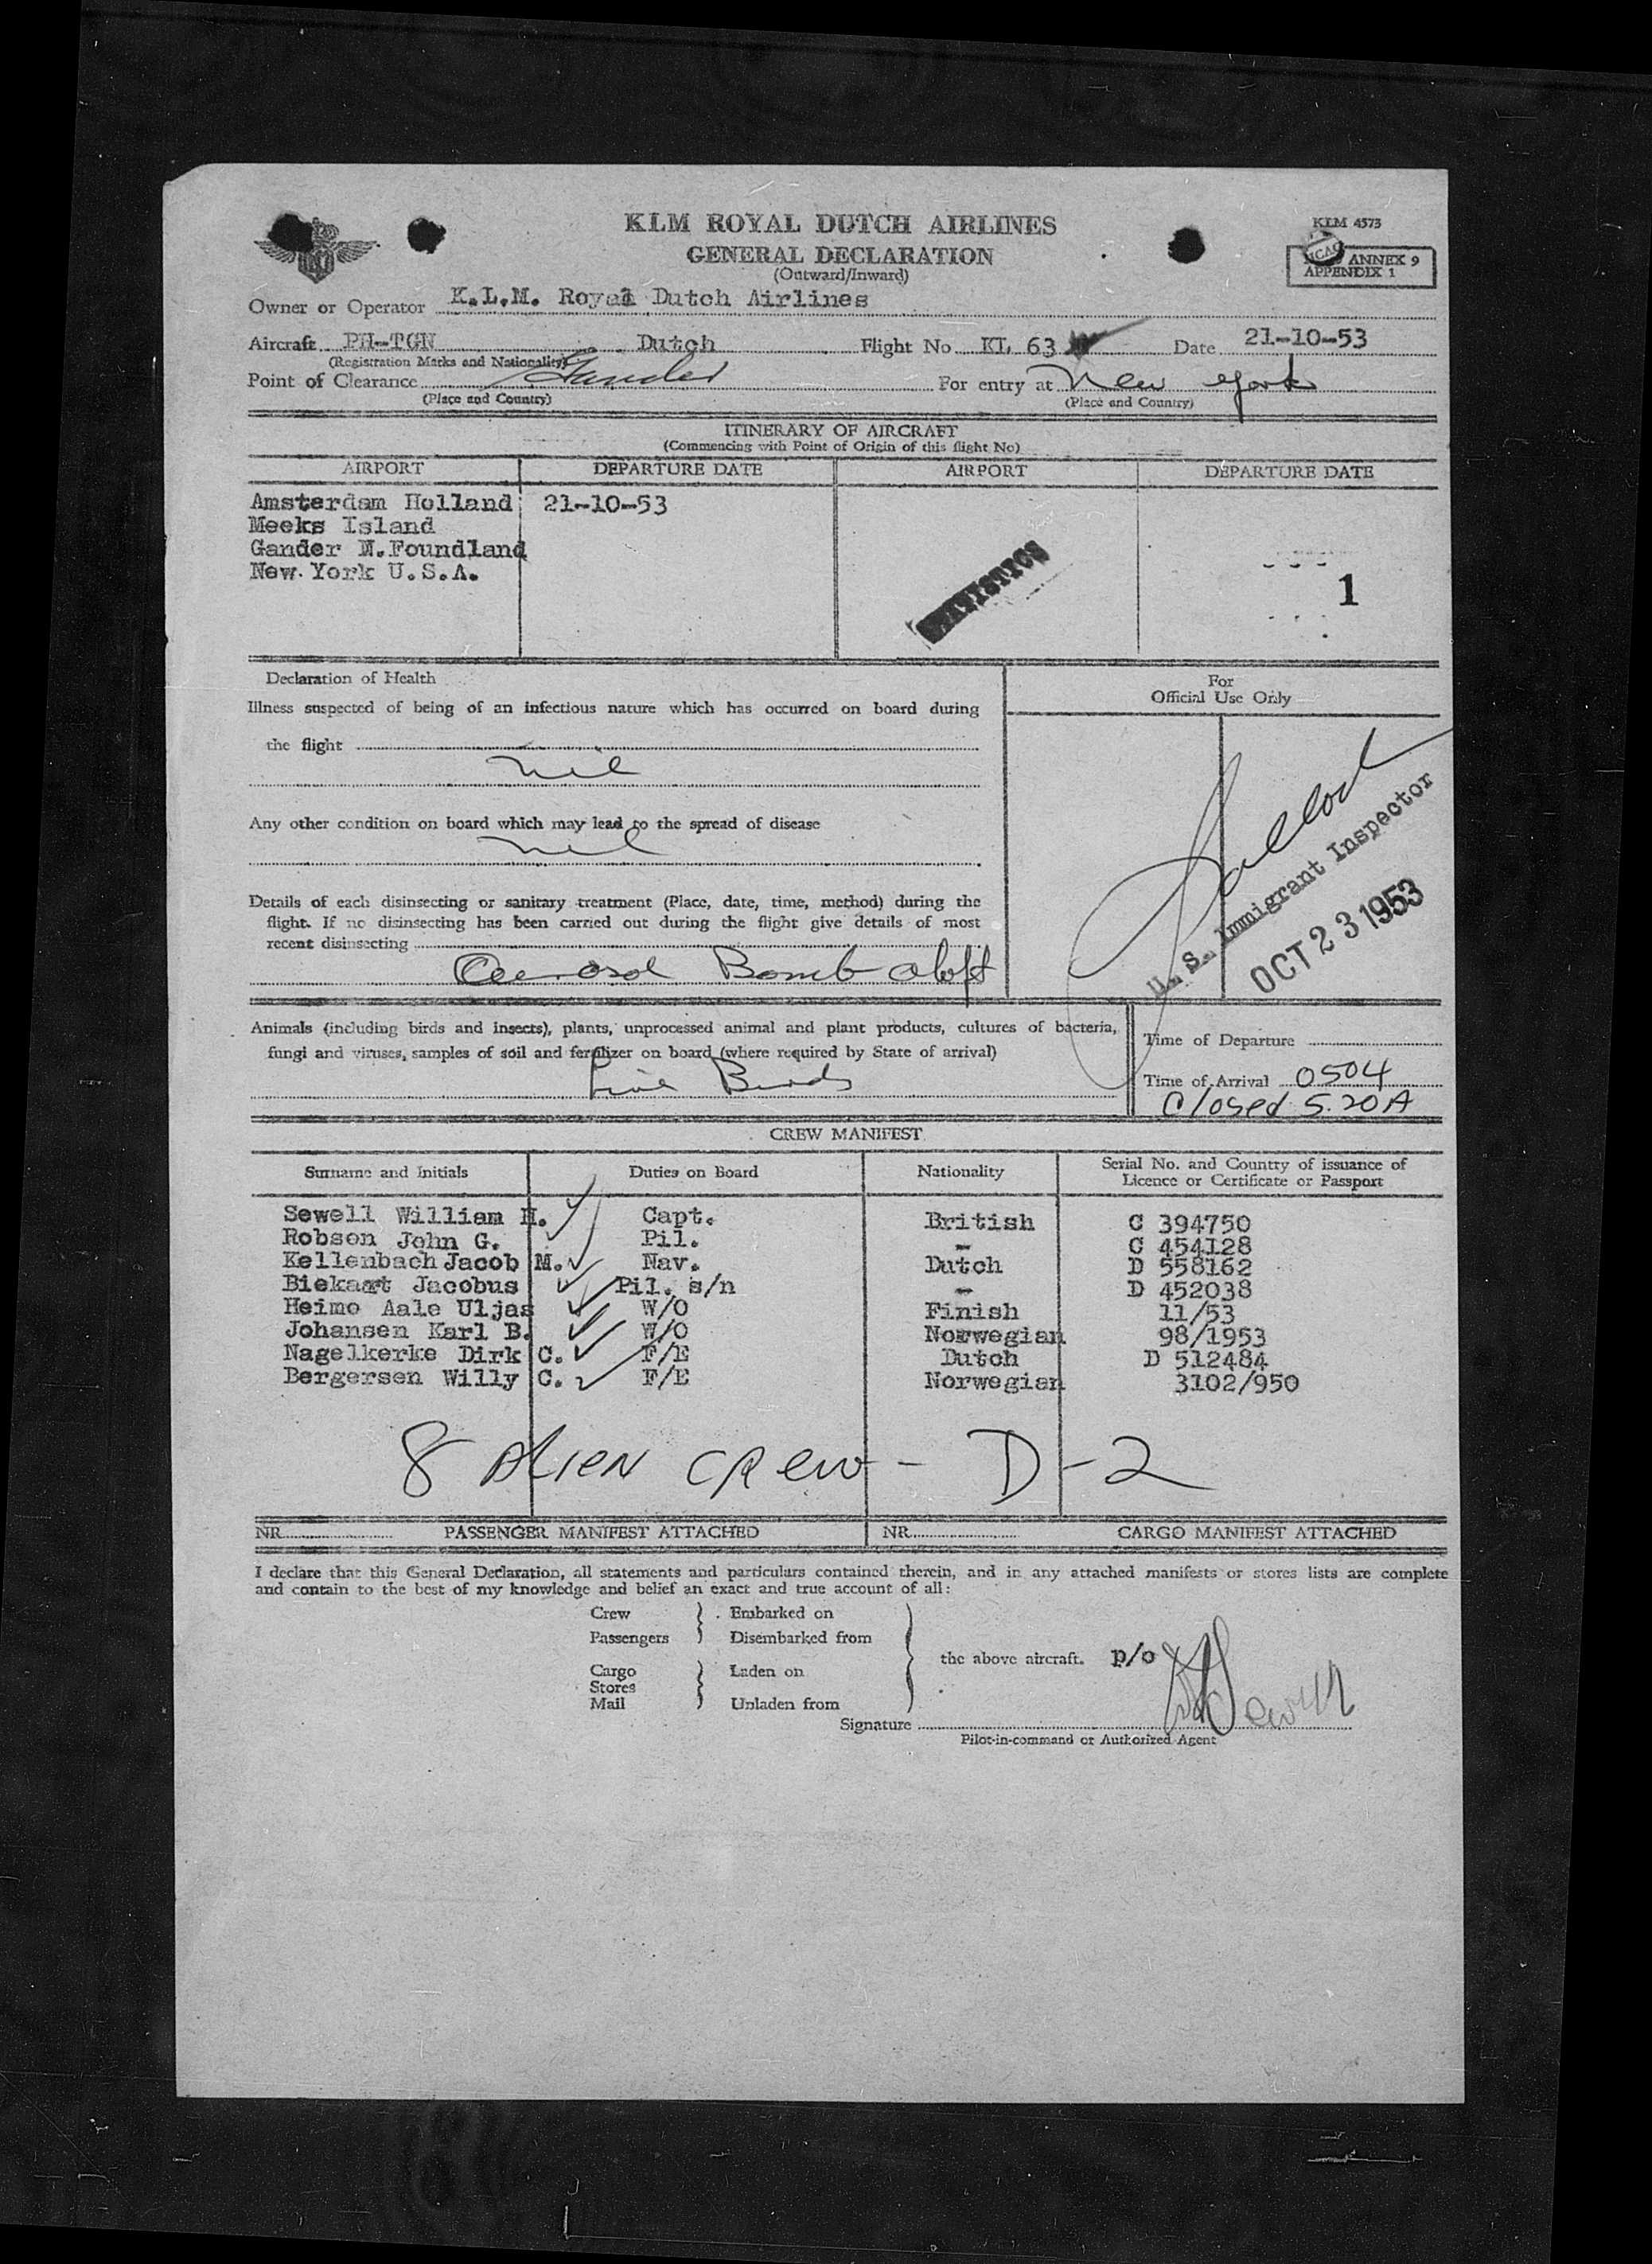 KLM ROYAL DUTCH AIRLINES
KLM 4573
GENERAL DECLARATION
(Outward/Inward)
ICAO ANNEX 9
APPENDIX 1
Owner or Operator K.L.M. Royal Dutch Airlines
Aircraft PH-TGN Dutch Flight No KL 63 Date 21-10-53
(Registration Marks and Nationality)
Point of Clearance Gander For entry at New York
(Place and Country) (Place and Country)
ITINERARY OF AIRCRAFT
(Commencing with Point of Origin of this flight No)
AIRPORT DEPARTURE DATE AIRPORT DEPARTURE DATE
Amsterdam Holland 21-10-53
Meeks Island
Gander N.Foundland
New York U.S.A.
STATISTICS
1
Declaration of Health
For
Official Use Only
Illness suspected of being of an infectious nature which has occurred on board during
the flight
nil
Any other condition on board which may lead to the spread of disease
nil
U. S. Immigrant Inspector
OCT 23 1953
Details of each disinsecting or sanitary treatment (Place, date, time, method) during the
flight. If no disinsecting has been carried out during the flight give details of most
recent disinsecting
Bomb aloft
Animals (including birds and insects), plants, unprocessed animal and plant products, cultures of bacteria,
fungi and viruses, samples of soil and fertilizer on board (where required by State of arrival)
Live Birds
Time of Departure
Time of Arrival 0504
Closed 5.20A
CREW MANIFEST
Surname and Initials Duties on Board Nationality Serial No. and Country of issuance of
Licence or Certificate or Passport
Sewell William H. Capt. British C 394750
Robson John G. Pil. - C 454128
Kellenbach Jacob M. Nav. Dutch D 558162
Biekart Jacobus Pil. s/n - D 452038
Heimo Aale Uljas W/O Finish 11/53
Johansen Karl B. W/O Norwegian 98/1953
Nagelkerke Dirk C. F/E Dutch D 512484
Bergersen Willy C. F/E Norwegian 3102/950
8 ALIEN CREW - D-2
NR PASSENGER MANIFEST ATTACHED NR CARGO MANIFEST ATTACHED
I declare that this General Declaration, all statements and particulars contained therein, and in any attached manifests or stores lists are complete
and contain to the best of my knowledge and belief an exact and true account of all:
Crew Embarked on
Passengers Disembarked from
the above aircraft. p/o
Cargo Laden on
Stores
Mail Unladen from
Signature
Pilot-in-command or Authorized Agent